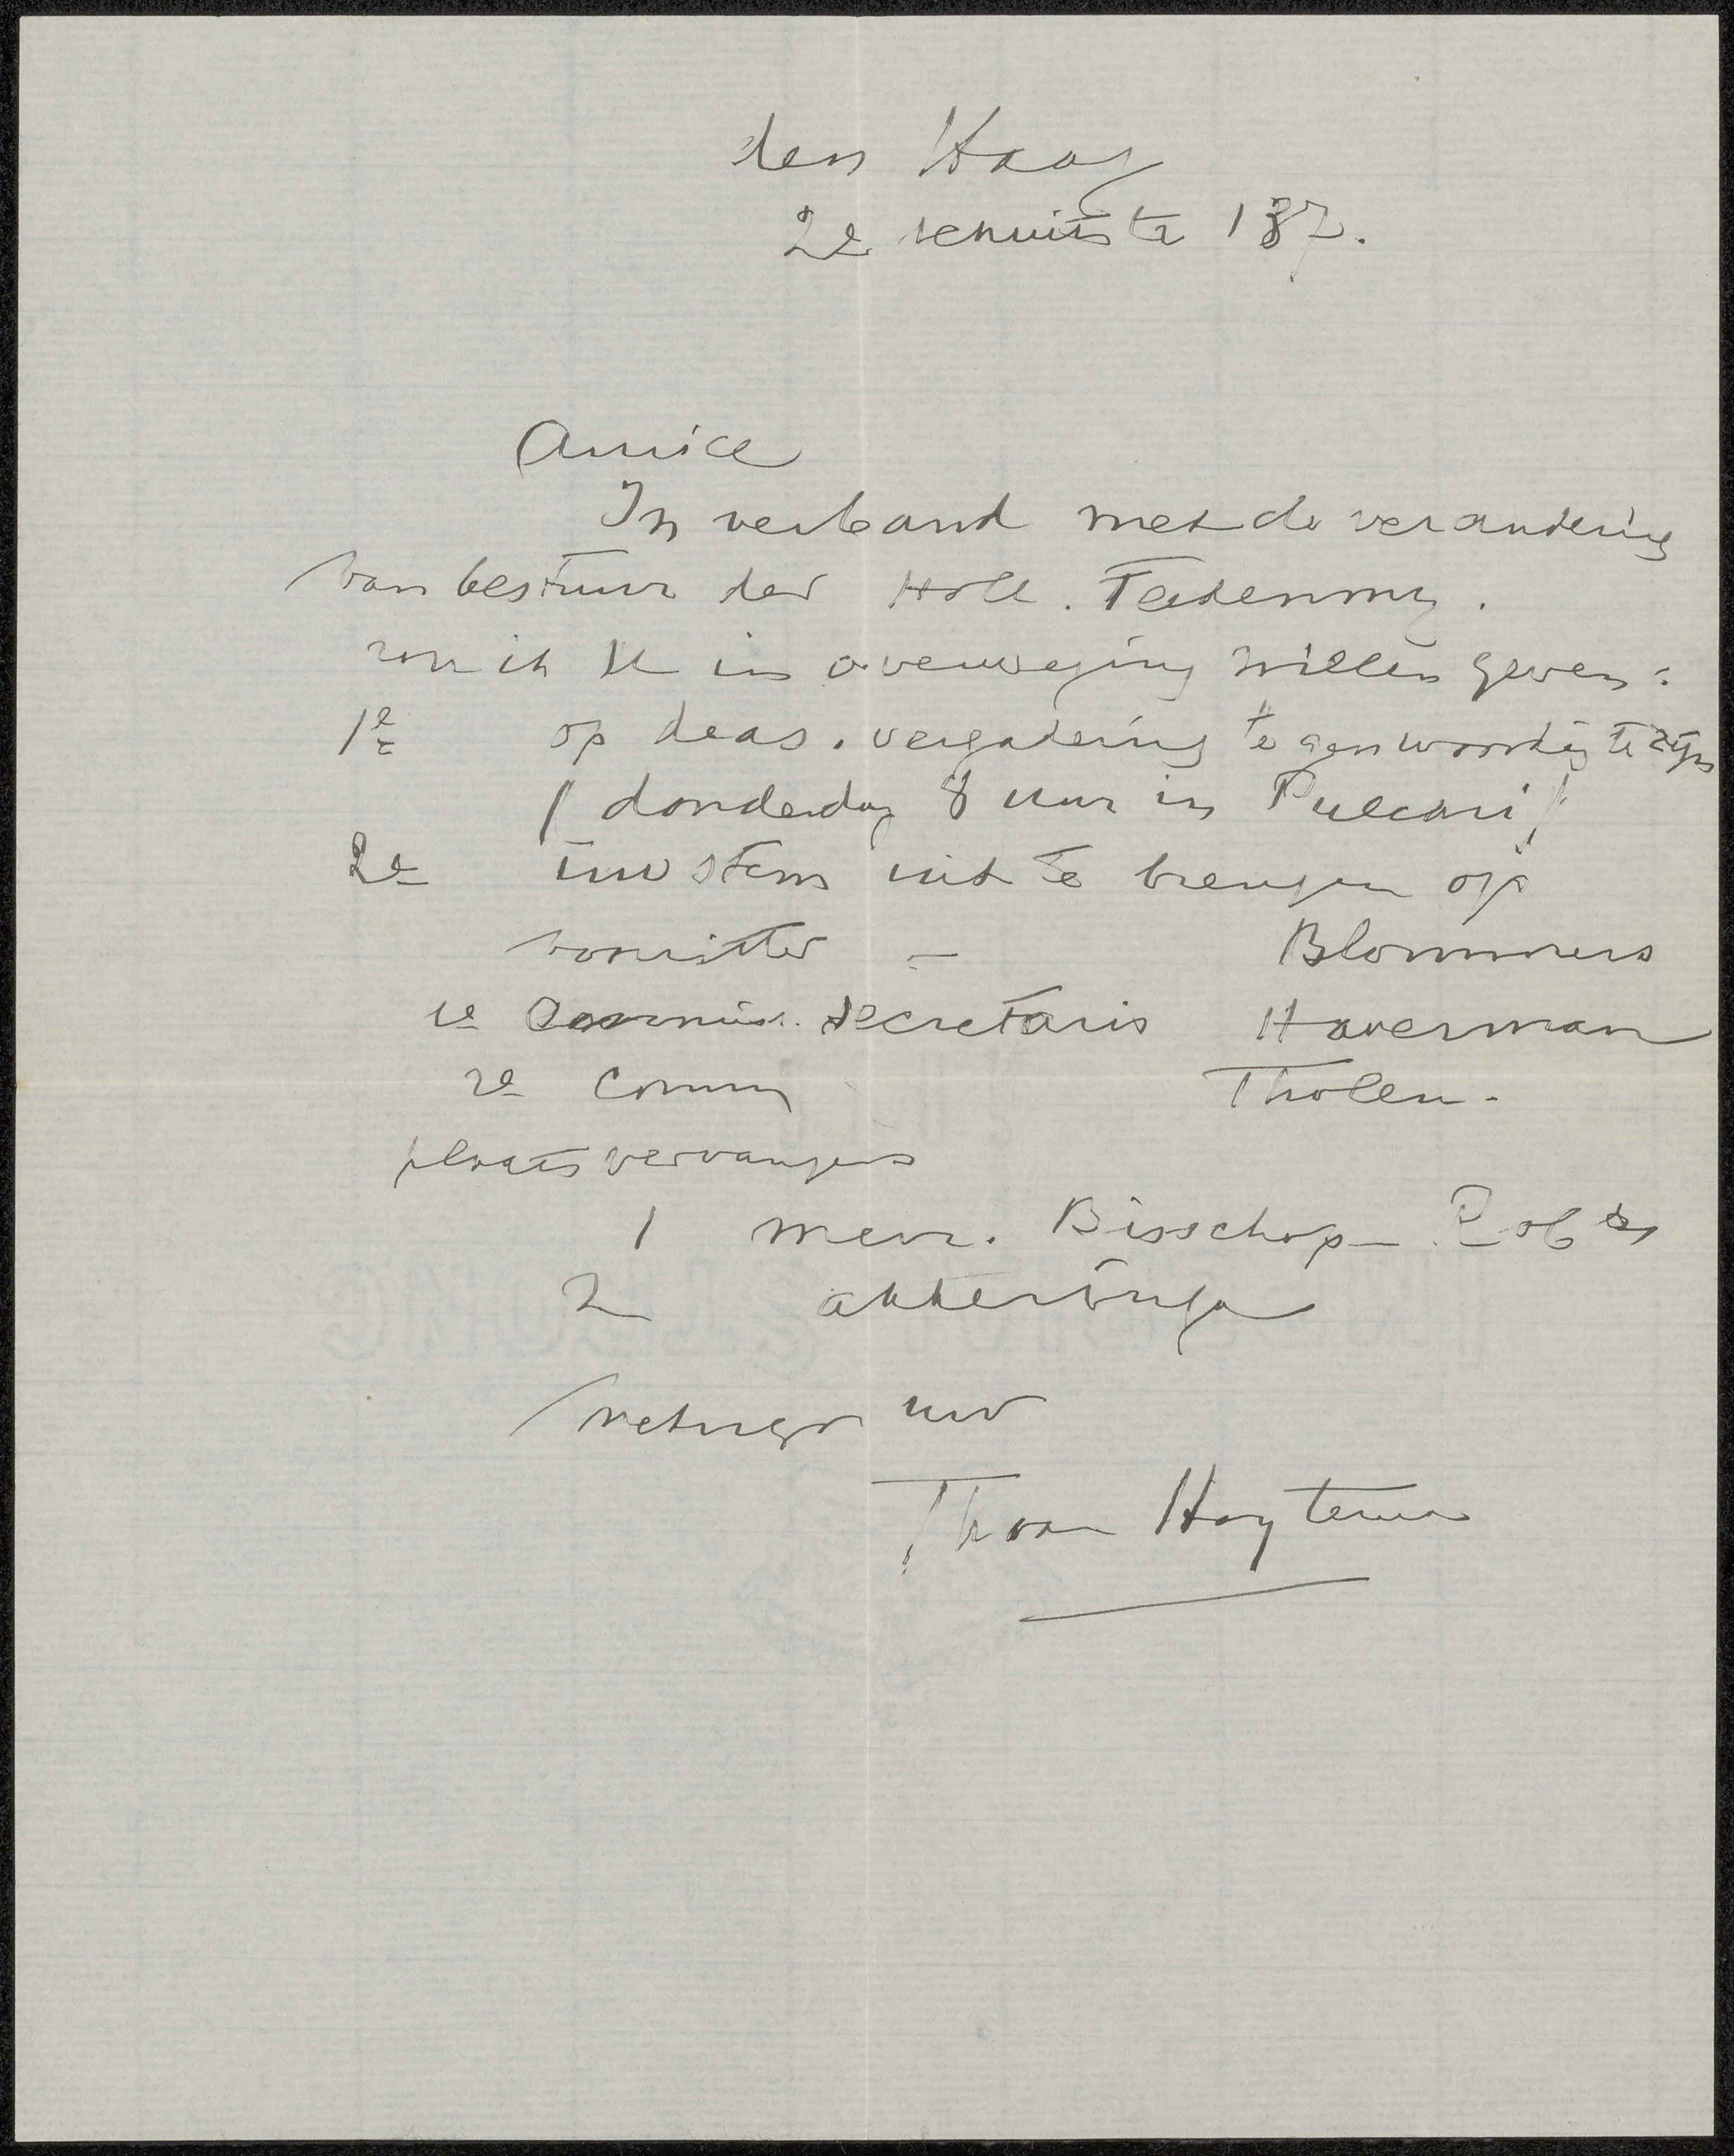 den Haag
2e schuitstr 187.
Amice
In verband met de verandering
van bestuur der Holl. Teekenmy.
zou ik U in overweging willen geven:
1e op de as. vergadering tegenwoordig te zijn
( donderdag 8 uur in Pulchri )
2e uw stem uit te brengen op
voorzitter — Blommers
1e Commiss. secretaris Haverman
2e Comm Tholen.
plaatsvervangers
1 mevr. Bisschop – Robers
2 akkeringa
uw
Th van Hoytema